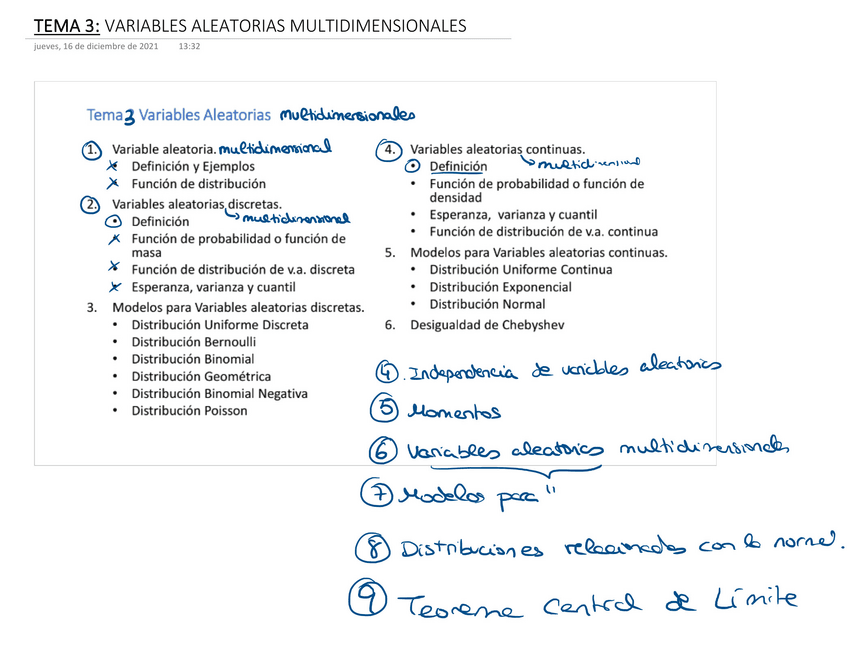 TEMA 3: VARIABLES ALEATORIAS MULTIDIMENSIONALES
jueves, 16 de diciembre de 2021 13:32
Tema 3 Variables Aleatorias multidimensionales
1. Variable aleatoria. multidimensional
Definición y Ejemplos
Función de distribución
2. Variables aleatorias discretas.
• Definición multidimensional
Función de probabilidad o función de
masa
Función de distribución de v.a. discreta
Esperanza, varianza y cuantil
3. Modelos para Variables aleatorias discretas.
• Distribución Uniforme Discreta
• Distribución Bernoulli
• Distribución Binomial
• Distribución Geométrica
• Distribución Binomial Negativa
• Distribución Poisson
4. Variables aleatorias continuas.
• Definición multidimensional
• Función de probabilidad o función de
densidad
• Esperanza, varianza y cuantil
• Función de distribución de v.a. continua
5. Modelos para Variables aleatorias continuas.
• Distribución Uniforme Continua
• Distribución Exponencial
• Distribución Normal
6. Desigualdad de Chebyshev
4. Independencia de variables aleatorias
5 Momentos
6 Variables aleatorias multidimensionales
7 Modelos para "
8 Distribuciones relacionadas con la normal.
9 Teorema Central de Límite